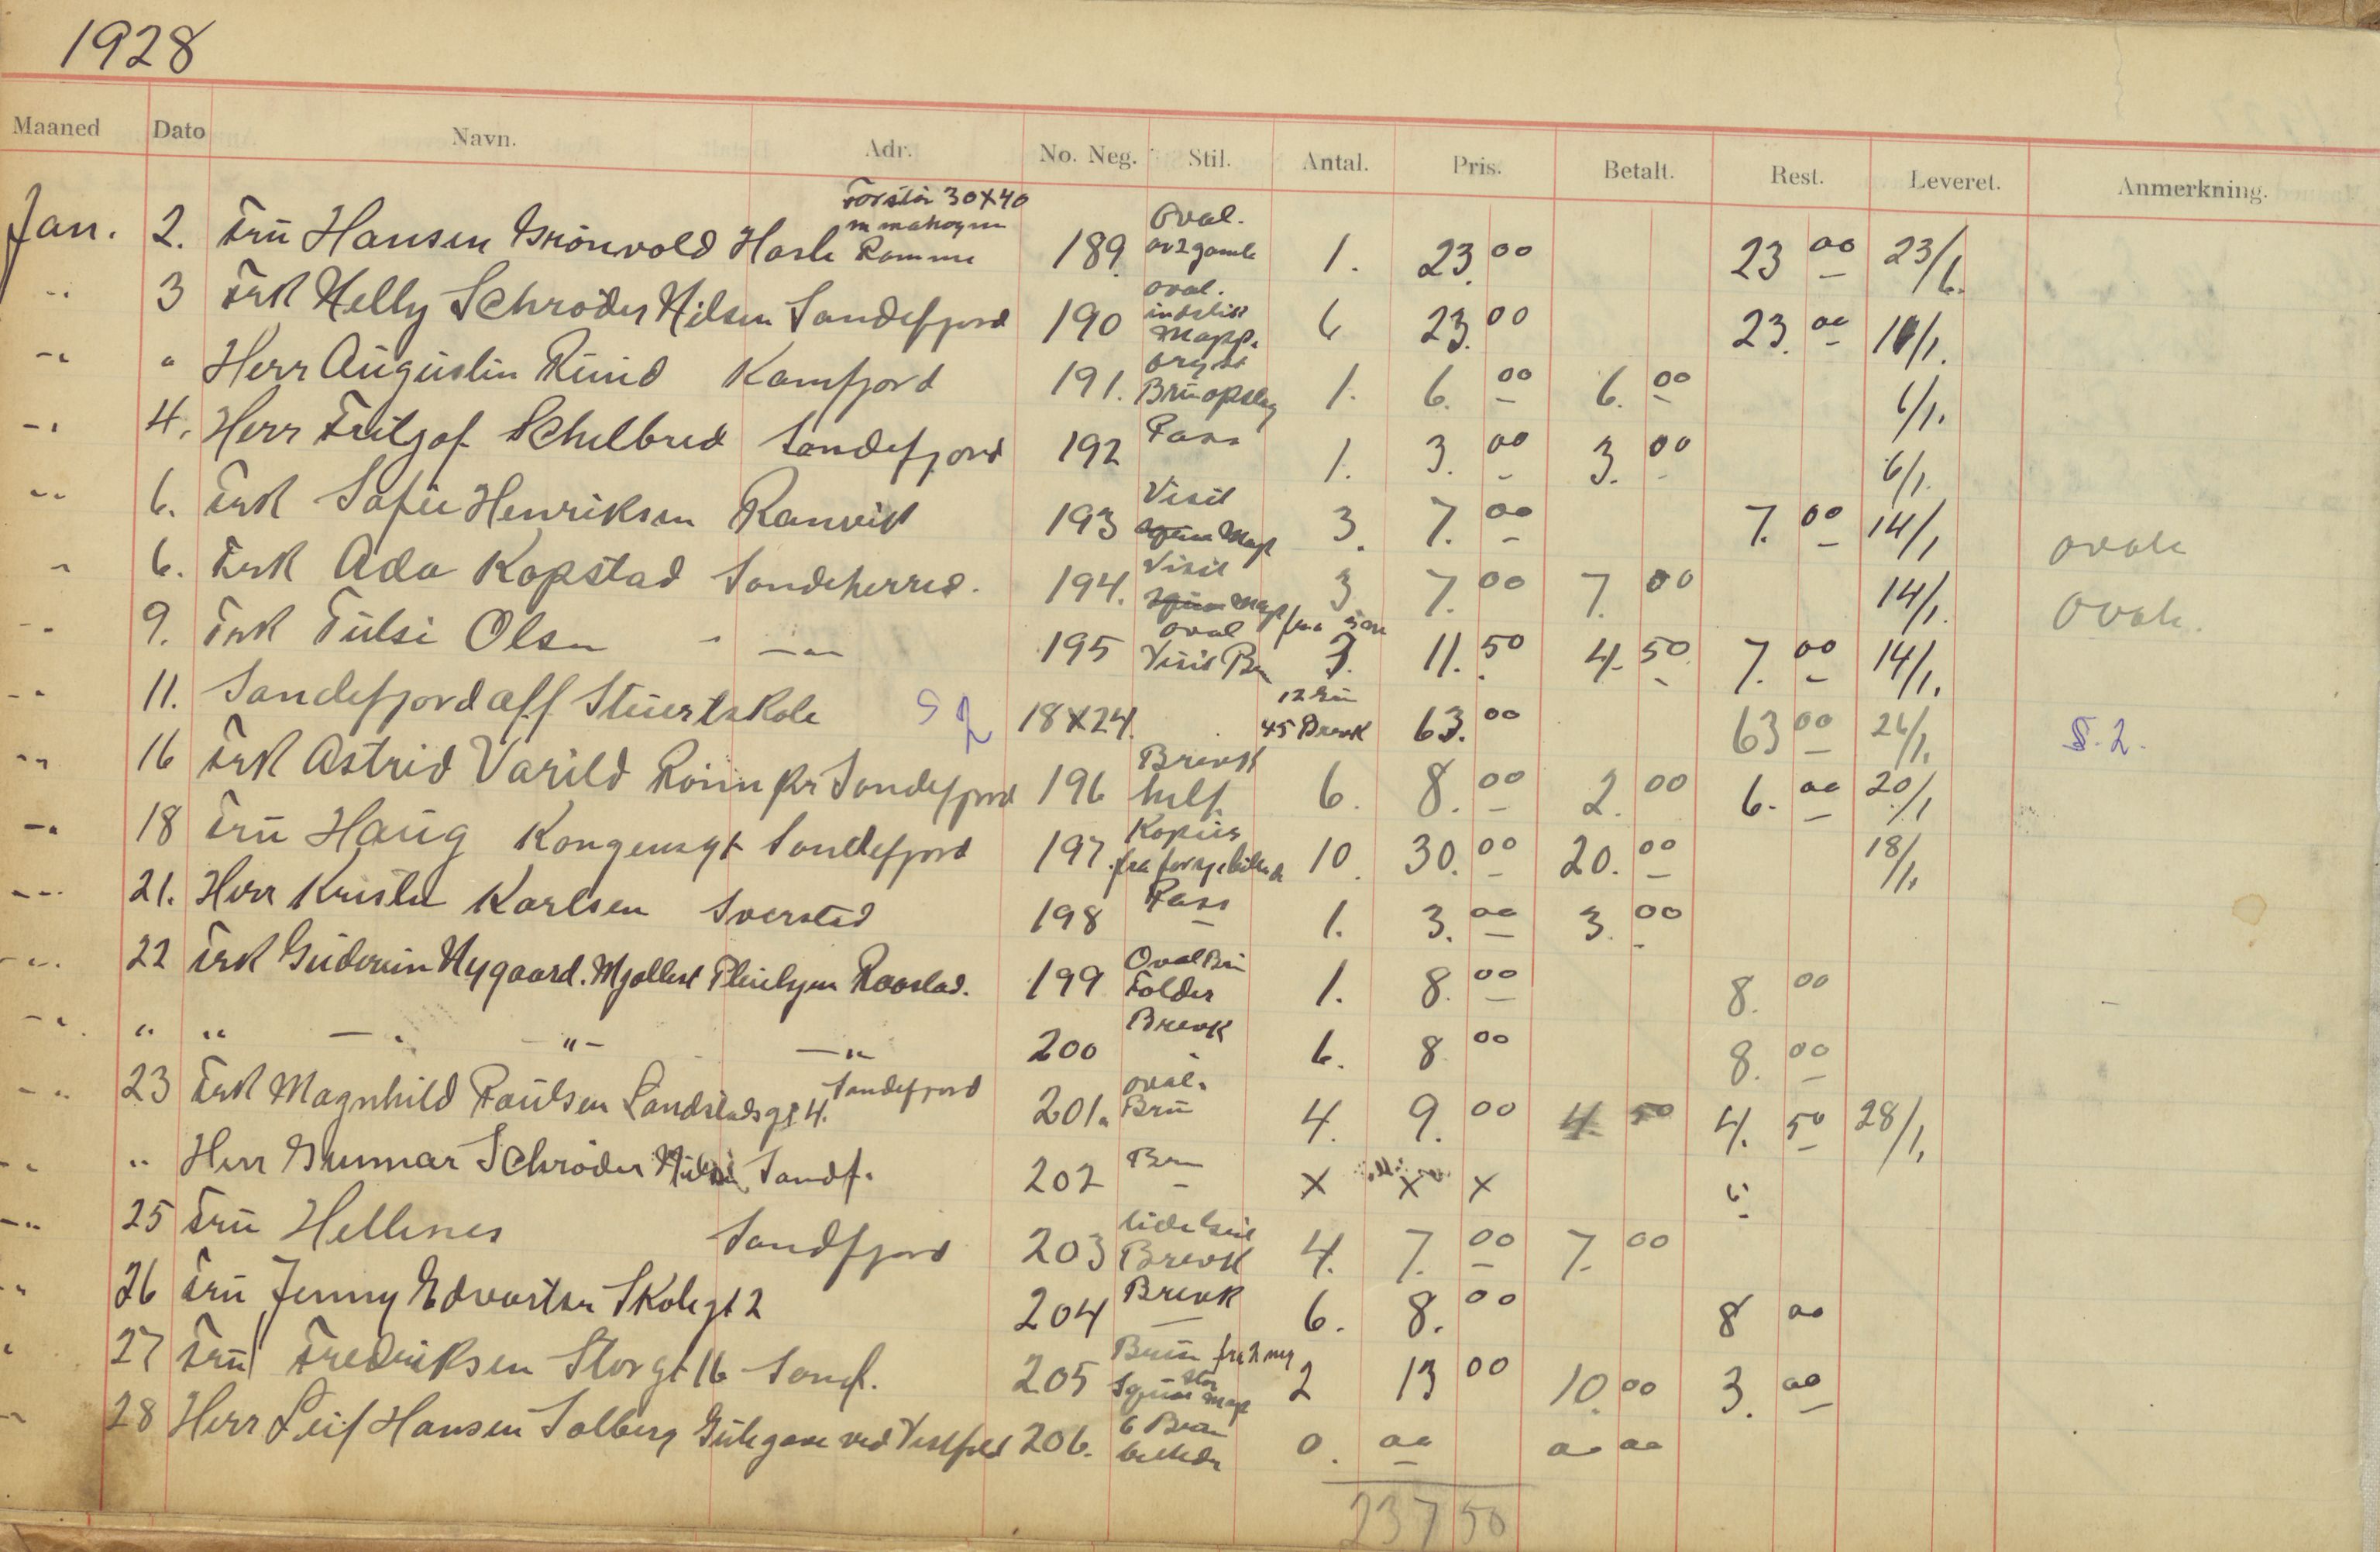 1928
Maaned Dato Navn. Adr. No. Neg. Stil. Antal. Pris. Betalt. Rest. Leveret. Anmerkning.
Forstör 30x40
m mahogni
Jan. 2. Frü Hansen Grönvold Hasle Ramme 189. Oval. av 2 gamle 1. 23.00 23 00 23/1.
3 Frk Nelly Schröder Nilsen Sandefjord 190 oval. Mapp. 6 23.00 23.00 11/1.
" Herr Aügüstin Rüüd Kamfjord 191. Brünopslag 1. 6.00 6.00 6/1.
4. Herr Fritjof Schelbred Sandefjord 192 Pass 1. 3.00 3.00 6/1
6. Frk Sofie Henriksen Ranvik 193 Visit Map 3. 7.00 7.00 14/1 ovale
6. Frk Ada Kopstad Sandeherred. 194. Visit Map 3 7.00 7.00 14/1. Ovale.
9. Frk Tülsi Olsen - — " — 195 oval Visit Brn 3. 11.50 4.50 7.00 14/1.
11. Sandefjord aff Stüertskole S 2 18x24. 12 Brü 45 Brevk 63.00 63 00 26/1. S.2.
16 Frk Astrid Varild pr Sandefjord 196 Brevk helf. 6. 8.00 2.00 6.00 20/1
18 Frü Haüg Kongensgt Sandefjord 197. Kopier fra 10. 30.00 20.00 18/1.
21. Herr Karlsen 198 Pass 1. 3.00 3.00
22 Frk Güdrün Nygaard. Raastad. 199 Oval Brü Folder 1. 8.00 8.00
" " — " — " — — " 200 Brevk 6. 8 00 8.00
23 Frk Magnhild Paülsen Landstadsgt 4. Sandefjord 201. oval. Brü 4. 9.00 4 50 4.50 28/1.
" Herr Günnar Schröder Nilsen Sandf. 202 Brn x x x
25 Frü Hellenes Sandfjord 203 Brevk 4. 7.00 7.00
26 Frü Jenny Edvartsen Skolegt 2 204 Brevk 6. 8.00 8 00
27 Frü Fredriksen Storgt 16 Sandf. 205 Brün fra 2 neg stor Map 2 13 00 10.00 3.00
28 Herr Leif Hansen Solberg ved 206. 6 Brün billeder 0. 00 00 00
237 50